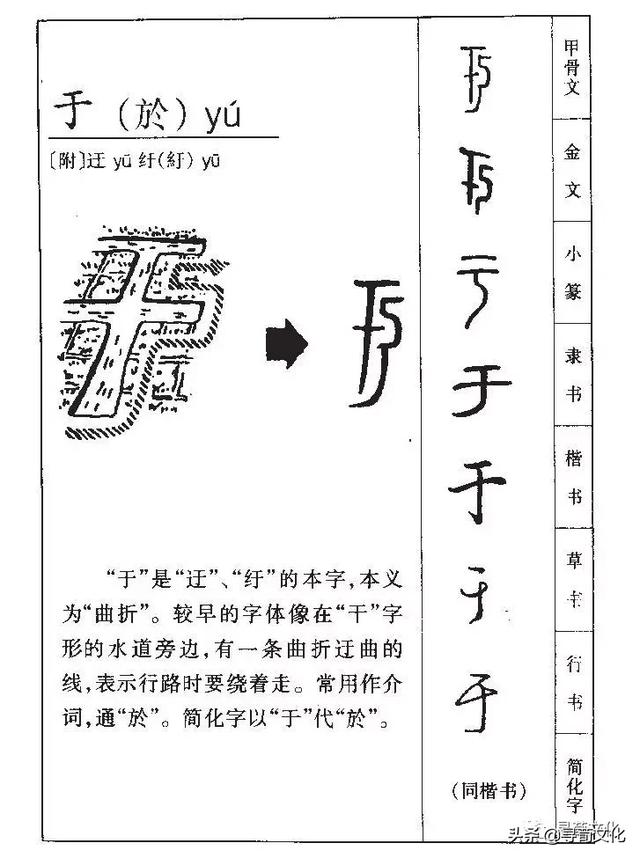 于（於）yú
〔附〕迂 yū 纡(紆) yū
“于”是“迂”、“纡”的本字，本义
为“曲折”。较早的字体像在“干”字
形的水道旁边，有一条曲折迂曲的
线，表示行路时要绕着走。常用作介
词，通“於”。简化字以“于”代“於”。
甲骨文
金文
小篆
于
隶书
于
楷书
于
草书
于
行书
(同楷书)
简化字
头条@寻蜀文化